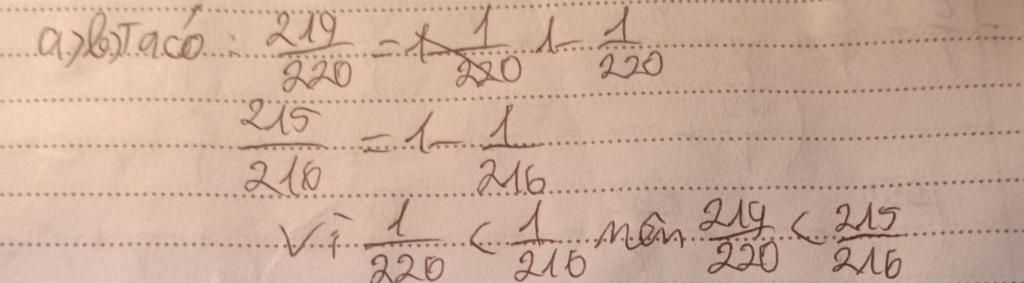 a,)b,)Ta có : 219/220 = 1 - 1/220
215/216 = 1 - 1/216
Vì 1/220 < 1/216 nên 219/220 < 215/216